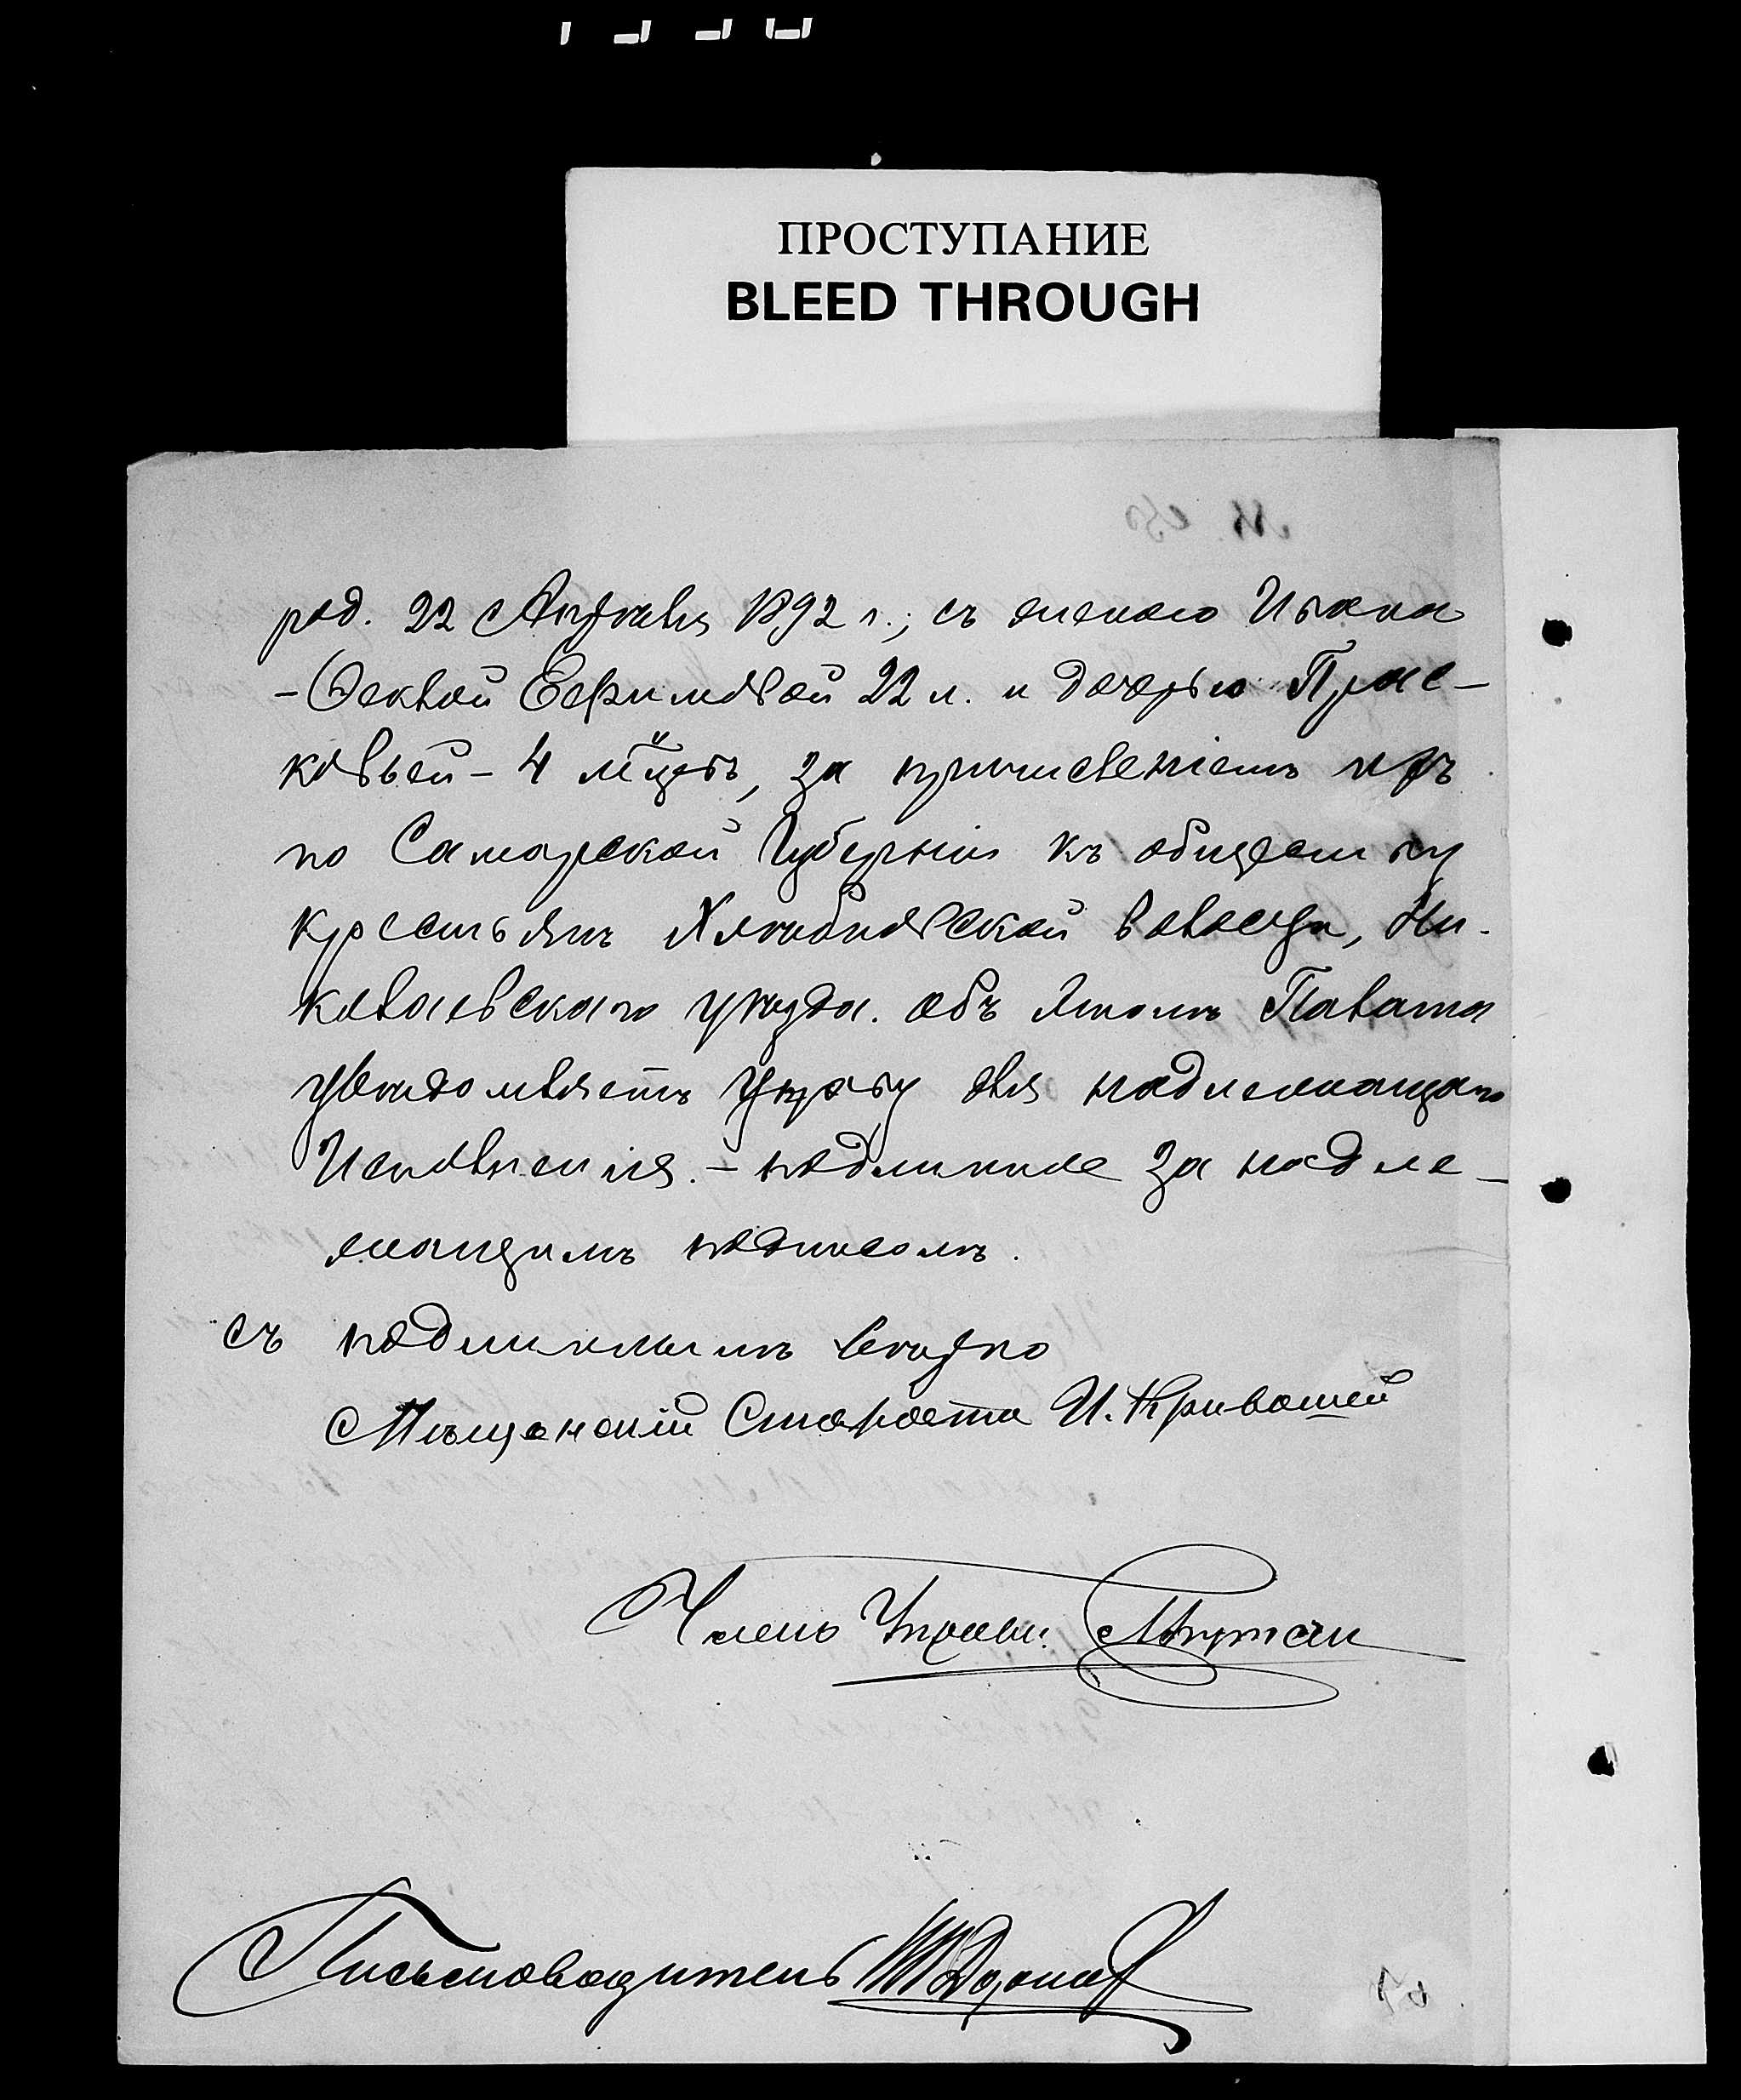 ПРОСТУПАНИЕ
BLEED THROUGH
род. 22 Апрѣля 1892 г.; съ женою Ивана
- Феклой Ефимовой 22 л. и дочерью Прас-
ковьей - 4 мѣ̈цевъ, за причисленіемъ ихъ
по Самарской Губерніи къ обществу
крестьянъ Хлѣбновской волости, Ни-
колаевскаго уѣзда. Объ этомъ Палата
увѣдомляетъ Управу для надлежащаго
Исполненія. - подлинное за надле-
жащимъ подписомъ.
съ подлиннымъ вѣрно
Мѣщанскій Староста И. Кривошей
Членъ Управы
Письмоводитель